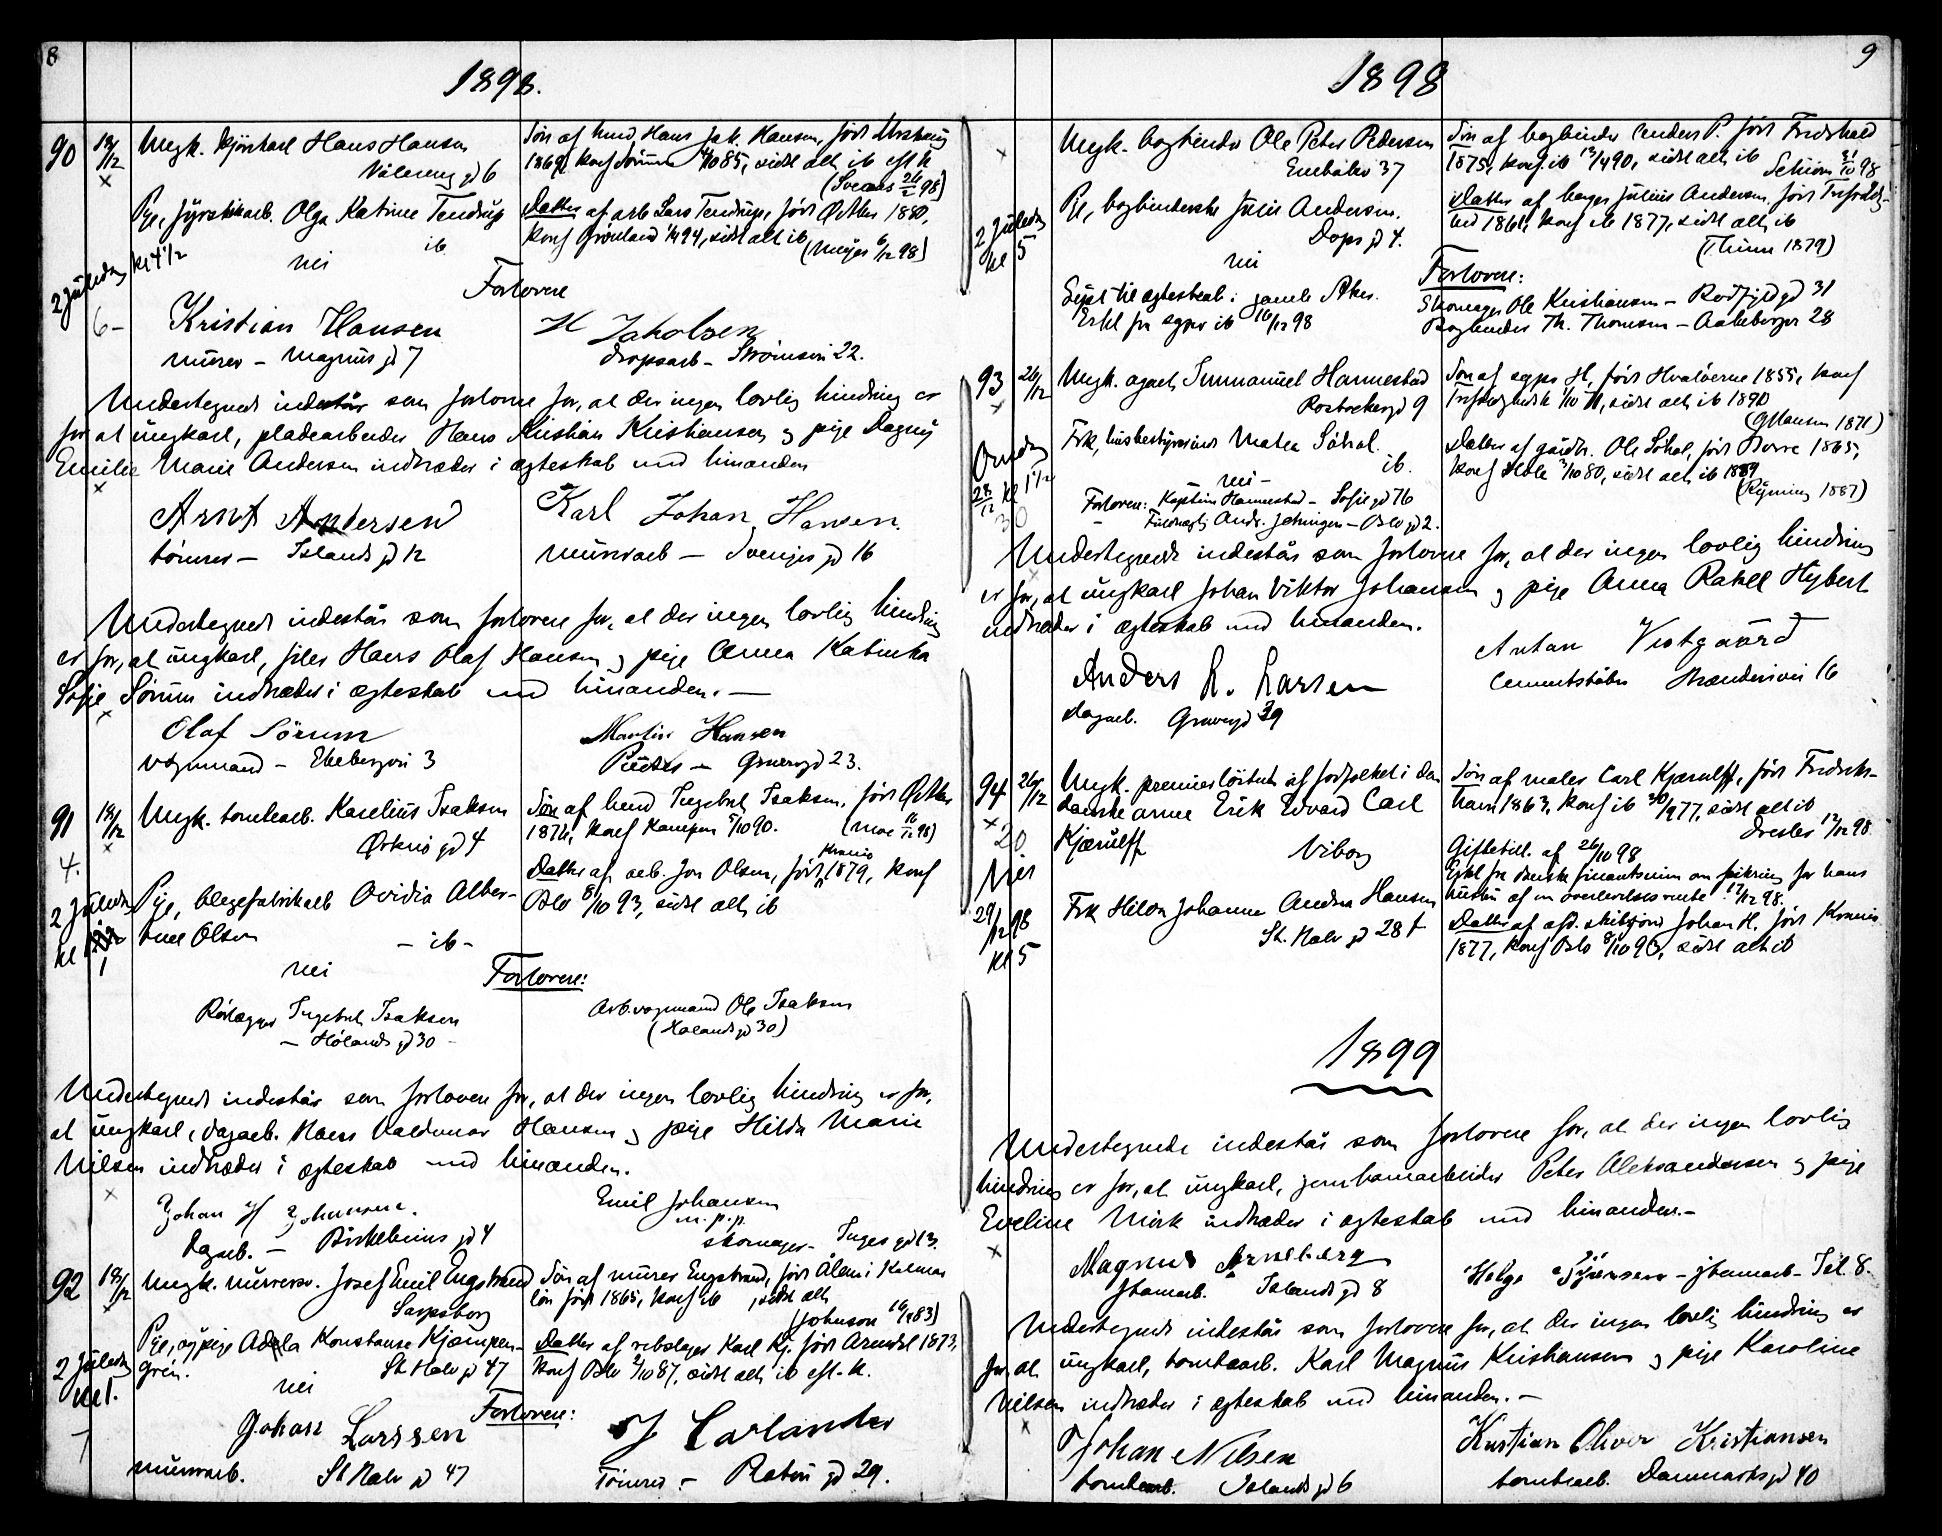 8
1898.
90 18/12 Ungk. Kjørekarl Hans Hansen
Vålereng gd 6
Søn af Hans Jak. Hansen, født
1869, konf Sørum 4/10 85, sidst alt. ib
(Svenaas 26/2 98)
Pge, fyrstikarb. Olga Katrine Tendrup
ib.
Datter af arb Lars Tendrup, født Ø Aker 1880,
konf Grønland 94, sidst alt ib
(Meyer 6/12 98)
2 Juledag kl 4 1/2
nei
Forlovere
6 -
Kristian Hansen
murer – Magnus gd 7
H Jakobsen
dropsarb – Strømsvei 22.
Undertegnede indestår som forlovere for, at der ingen lovlig hindring er
for at ungkarl, pladearbeider Hans Kristian Kristiansen og pige Dagny
Emilie Marie Andersen indtræder i ægteskab med hinanden
Arnt Andersen
tømrer – Islands gd 12
Karl Johan Hansen.
murerarb – Sveriges gd 16
Undertegnede indestår som forlovere for, at der ingen lovlig hindring
er for, at ungkarl, filer Hans Olaf Hansen og pige Anna Katinka
Sofie Sørum indtræder i ægteskab med hinanden. –
Olaf Sørum
vognmand – Ekebergvei 3
Martin Hansen
Pudser – Grønergd 23.
91 18/12 Ungk. tomtearb. Karelius Isaksen
Ørknø gd 4
Søn af Ingebret Isaksen, født Ø Aker
1874, konf Kampen 5/10 90.
(Moe 98)
4.
Pge, blegefabrikarb Ovidia Alber-
tine Olsen
– ib –
Datter af arb. Jon Olsen, født Krania 1879, konf
Oslo 8/10 93, sidst alt ib
2 Juledag
kl
1
nei
Forlovere:
Rørlægger Ingebret Isaksen
– Hølands gd 30 –
Arb.vognmand Ole Isaksen
(Hølands gd 30)
Undertegnede indestår som forlovere for, at der ingen lovlig hindring er for,
at ungkarl, dagarb. Hans Valdemar Hansen og pige Hilda Marie
Nilsen indtræder i ægteskab med hinanden.
Johan H Johansen.
Dagarb. – Birkebeiner gd 4
Emil Johansen
m.p.p.
skomager – Inges gd 13.
92 18/12 Ungk. murersv. Josef Emil Engstrand
Sarpsborg
Søn af murer Engstrand, født Ålem i Kalmar
län født 1865, konf ib, sidst alt
(Johnson 83)
Pge, sypige Adela Konstanse Kjæmpen-
grén.
St Halv gd 47
Datter af rebslager Karl Kj. født Arendal 1873,
konf Oslo 2/10 87, sidst alt ib
2 Juledag
kl 1.
nei
Forlovere:
7
Johan Larssen
murerarb. St Halv gd 47
J Carlander
Tømrer – Rabén gd 29.
9
1898
Ungk. bogbinder Ole Peter Pedersen
Enebakv 37
Søn af bogbinder Anders P. født Fredrhald
1875, konf ib 13/4 90, sidst alt ib
Schiøn 21/10 98
Pge, bogbinderske Julie Andersen.
Dops gd 4.
Datter af berger Julius Andersen, født Trefoldig-
hed 1861, konf ib 1877, sidst alt ib
(Thinn 1879)
2 Juledag
kl 5
nei
Lyst til ægteskab i gamle Aker.
Erkl fra sgpr ib 16/12 98
Forlovere:
Skomager Ole Kristiansen – Rødfyld gd 31
Bogbinder Th. Thomsen – Aakebergv 28
93 26/12 Ungk. agent Immanuel Hannestad
Rostockergd 9
Søn af sgpr H, født Hvaløerne 1855, konf
Trefoldighedsk 71, sidst alt ib 1890
(G Hansen 1871)
Frk, husbestyrerinde Matea Søhol.
ib.
Datter af gårdbr. Ole Søhol, født Borre 1865,
konf Hole 3/10 80, sidst alt ib 1889
(Rynning 1887)
Onsdag
28/12 kl 1 1/2
30
nei –
Forlovere: Kaptein Hannestad – Sofie gd 76
Andr. Jahnsgen – Oslo gd 2.
Undertegnede indestår som forlovere for, at der ingen lovlig hindring
er for, at ungkarl Johan Viktor Johansen og pige Anna Rakel Hybert
indtræder i ægteskab med hinanden.
Anders L. Larsen
dagarb. Grønergd 39
Anton Vestgaard
Cementstøber Strandensvei 16
94 26/12 Ungk. premierløitnt af fodfolket i den
danske arme Erik Edvard Carl
20 Kjærulff
Viborg
Søn af maler Carl Kjærulff, født Fredriks-
havn 1863, konf ib 30/9 77, sidst alt ib
Dresler 17/12 98
Giftetill. af 26/10 98
Erkl fra dansk finantsmin om sikring for hans
hustru af en overlevelsesrente 17/12 98.
Nei
29/12 98
kl 5
Frk Hilda Johanne Andrea Hansen
St. Halv gd 28 f
Datter af afd. skibsfører Johan H. født Krania
1877, konf Oslo 8/10 93, sidst alt ib
1899
Undertegnede indestår som forlovere for, at der ingen lovlig
hindring er for, at ungkarl, jernbanearbeider Peter Aleksandersen og pige
Eveline Mork indtræder i ægteskab med hinanden. –
Magnus Arnesberg
Jbanearb. Islands gd 8
Helge Syversen – jbanearb – Tøl 8.
Undertegnede indestår som forlovere for, at der ingen lovlig hindring er
for, at ungkarl, tomtearb. Karl Magnus Kristiansen og pige Karoline
Nilsen indtræder i ægteskab med hinanden. –
Johan Nilsen
tomtearb. Islands gd 6
Kristian Oliver Kristiansen
tomtearb. Danmarks gd 40